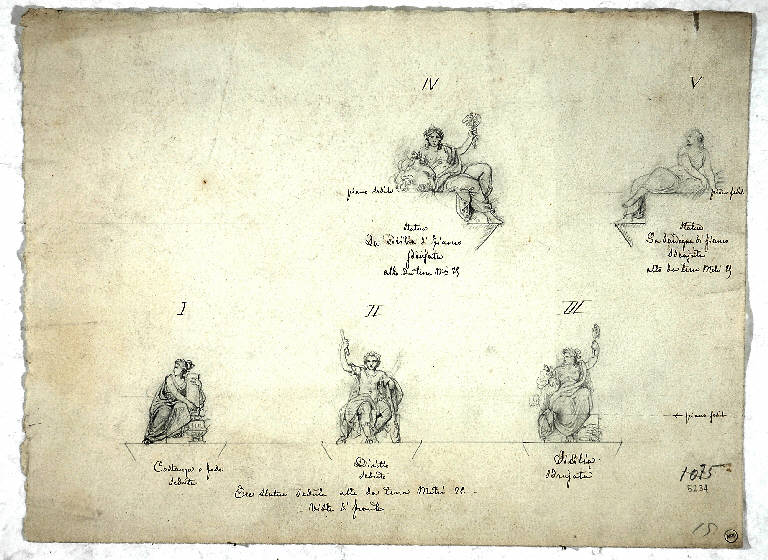 IV
V
piano sedile
piano sedile
Statua
La Sicilia di fianco
sdrajata
alta da terra Met
Statua
La Sardegna di fianco
Sdrajata
alta da terra Metri
I
II
III
piano sedile
Costanza e fede
seduta
Diritto
seduto
Sicilia
Sdrajata
Tre Statue sedute alte da terra Metri
Viste di fronte
1075
5234
15